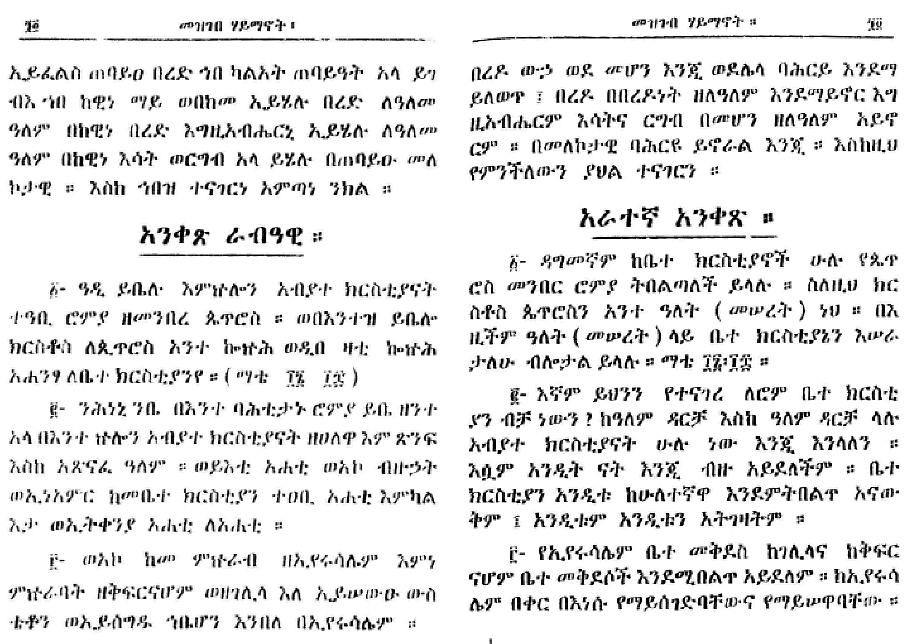 ፲፬ መዝገበ ሃይማኖት ፡
ኢይፈልስ ጠባይዐ በረድ ኀበ ካልአት ጠባይዓት አላ ይገ
ብእ ኀበ ከዊነ ማይ ወበከመ ኢይሄሉ በረድ ለዓለመ
ዓለም በከዊነ በረድ እግዚአብሔርኒ ኢይሄሉ ለዓለመ
ዓለም በከዊነ እሳት ወርግብ አላ ይሄሉ በጠባይዑ መለ
ኮታዊ ። እስከ ኀበዝ ተናገርነ አምጣነ ንክል ።
አንቀጽ ራብዓዊ ።
፩- ዓዲ ይቤሉ እምኵሎን አብያተ ክርስቲያናት
ተዓቢ ሮምያ ዘመንበረ ጴጥሮስ ። ወበእንተዝ ይቤሎ
ክርስቶስ ለጴጥሮስ አንተ ኰኵሕ ወዲበ ዛቲ ኰኵሕ
አሐንፃ ለቤተ ክርስቲያንየ ። ( ማቴ ፲፮ ፲፰ )
፪- ንሕነኒ ንቤ በእንተ ባሕቲታኑ ሮምያ ይቤ ዘንተ
አላ በእንተ ኵሎን አብያተ ክርስቲያናት ዘሀለዋ እም ጽንፍ
እስከ አጽናፈ ዓለም ። ወይእቲ አሐቲ ወአኮ ብዙኃት
ወኢነአምር ከመቤተ ክርስቲያን ተዐቢ አሐቲ እምካል
እታ ወኢትቀንያ አሐቲ ለአሐቲ ።
፫- ወአኮ ከመ ምኵራብ ዘኢየሩሳሌም እምነ
ምኵራባት ዘቅፍርናሆም ወዘገሊላ እለ ኢይሠውዑ ውስ
ቴቶን ወኢይሰግዱ ኀቤሆን እንበለ በኢየሩሳሌም ።
መዝገበ ሃይማኖት ። ፲፬
በረዶ ውኃ ወደ መሆን እንጂ ወደሌላ ባሕርይ እንደማ
ይለወጥ ፤ በረዶ በበረዶነት ዘለዓለም እንደማይኖር እግ
ዚአብሔርም እሳትና ርግብ በመሆን ዘለዓለም አይኖ
ርም ። በመለኮታዊ ባሕርዩ ይኖራል እንጂ ። እስከዚህ
የምንችለውን ያህል ተናገርን ።
አራተኛ አንቀጽ ።
፩- ዳግመኛም ከቤተ ክርስቲያኖች ሁሉ የጴጥ
ሮስ መንበር ሮምያ ትበልጣለች ይላሉ ። ስለዚህ ክር
ስቶስ ጴጥሮስን አንተ ዓለት ( መሠረት ) ነህ ። በእ
ዚችም ዓለት ( መሠረት ) ላይ ቤተ ክርስቲያኔን እሠራ
ታለሁ ብሎታል ይላሉ ። ማቴ ፲፮፡፲፰ ።
፪- እኛም ይህንን የተናገረ ለሮም ቤተ ክርስቲ
ያን ብቻ ነውን ? ከዓለም ዳርቻ እስከ ዓለም ዳርቻ ላሉ
አብያተ ክርስቲያናት ሁሉ ነው እንጂ እንላለን ።
እሷም አንዲት ናት እንጂ ብዙ አይደለችም ። ቤተ
ክርስቲያን አንዲቱ ከሁለተኛዋ እንደምትበልጥ አናው
ቅም ፤ አንዲቱም አንዲቱን አትገዛትም ።
፫- የኢየሩሳሌም ቤተ መቅደስ ከገሊላና ከቅፍር
ናሆም ቤተ መቅደሶች እንደሚበልጥ አይደለም ። ከኢየሩሳ
ሌም በቀር በእነሱ የማይሰገድባቸውና የማይሠዋባቸው ።